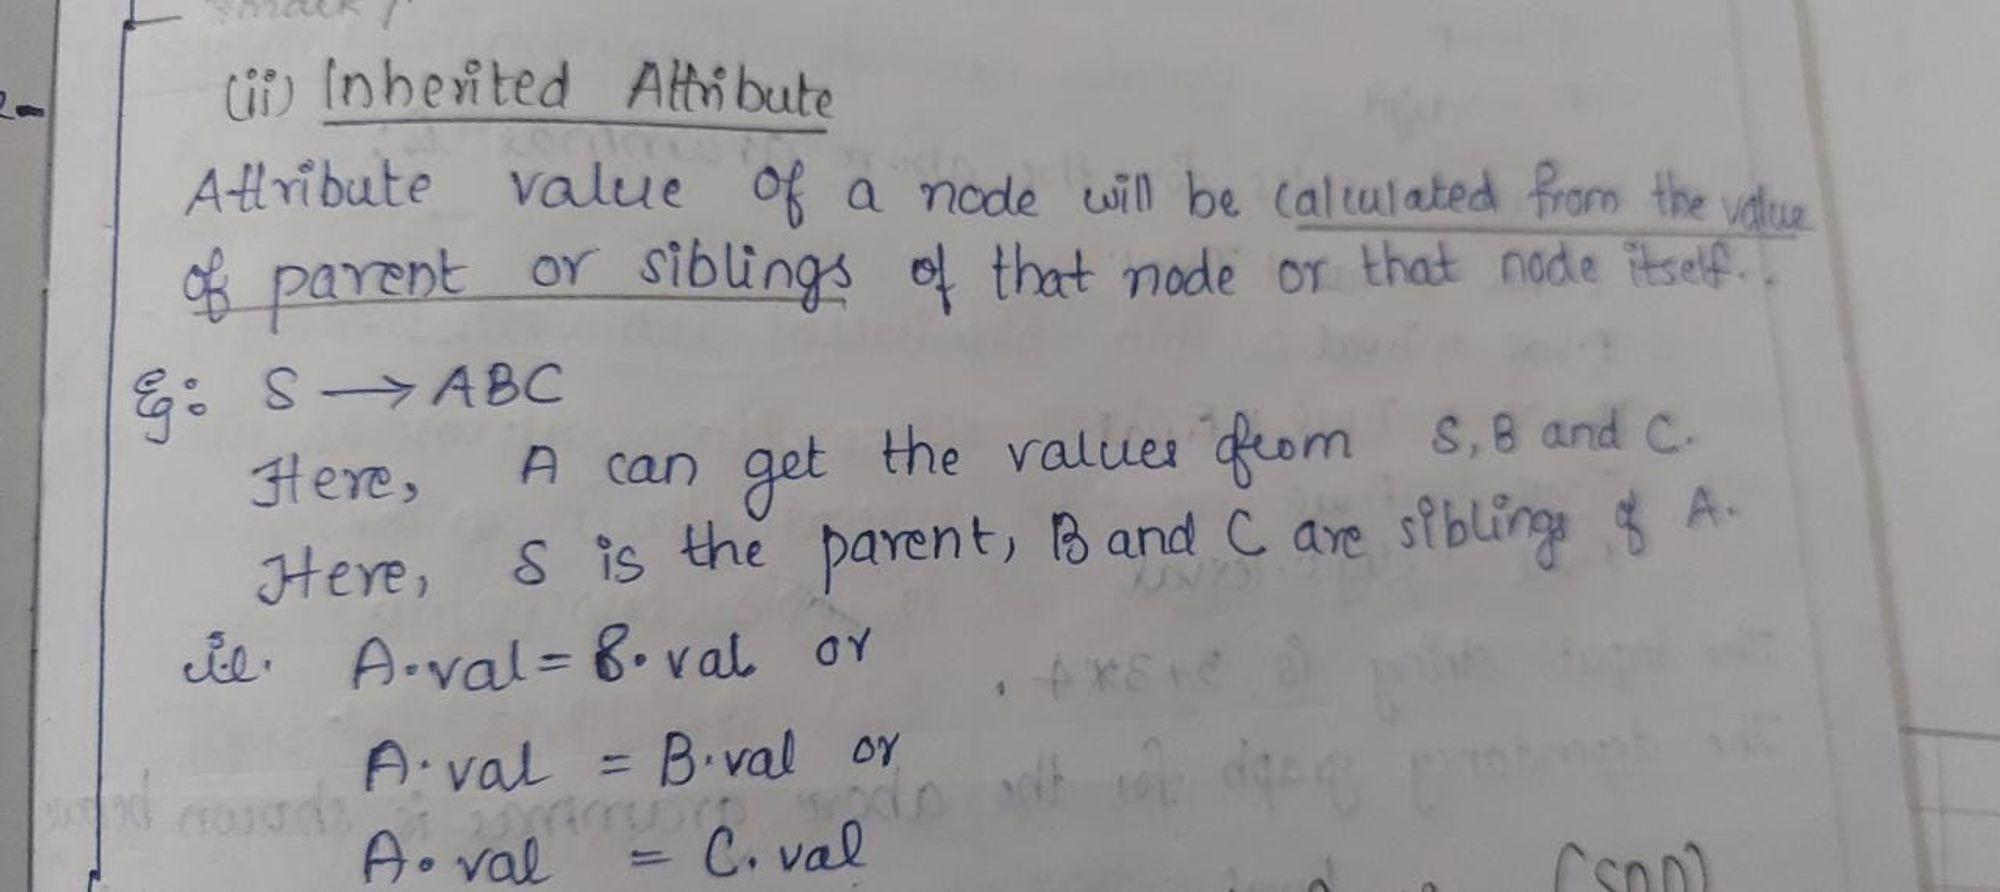 (ii) Inherited Attribute
Attribute value of a node will be calculated from the value
of parent or siblings of that node or that node itself.
Eg: S → ABC
Here, A can get the values from S, B and C.
Here, S is the parent, B and C are siblings of A.
i.e. A.val = S.val or
A.val = B.val or
A.val = C.val